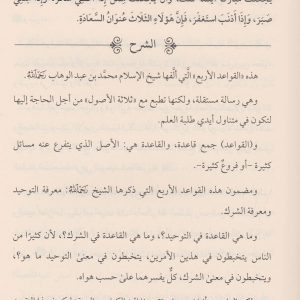 صَبَرَ، وَإِذَا أَذْنَبَ اسْتَغْفَرَ، فَإِنَّ هَؤُلَاءِ الثَّلَاثَ عُنْوَانُ السَّعَادَةِ.
الشرح
هذه «القواعد الأربع» الَّتي ألَّفها شيخ الإسلام محمَّد بن عبد الوهاب رَحِمَهُ اللَّهُ.
وهي رسالة مستقلة، ولكنها تطبع مع «ثلاثة الأصول» من أجل الحاجة إليها
لتكون في متناول أيدي طلبة العلم.
و(القواعد) جمع قاعدة، والقاعدة هي: الأصل الذي يتفرع عنه مسائل
كثيرة -أو فروعٌ كثيرة-.
ومضمون هذه القواعد الأربع التي ذكرها الشيخ رَحِمَهُ اللَّهُ: معرفة التوحيد
ومعرفة الشرك.
وما هي القاعدة في التوحيد؟، وما هي القاعدة في الشرك؟، لأن كثيرًا من
الناس يتخبطون في هذين الأمرين، يتخبطون في معنىٰ التوحيد ما هو؟،
ويتخبطون في معنىٰ الشرك، كلٌّ يفسرهما علىٰ حسب هواه.